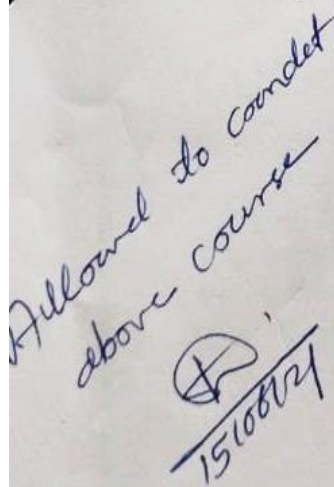 Allowed to condet
above course
15/06/21